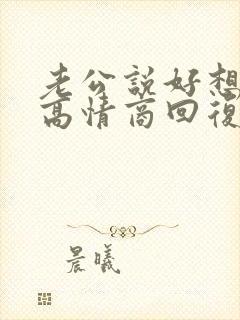 老公說好想
高情商回復
晨曦